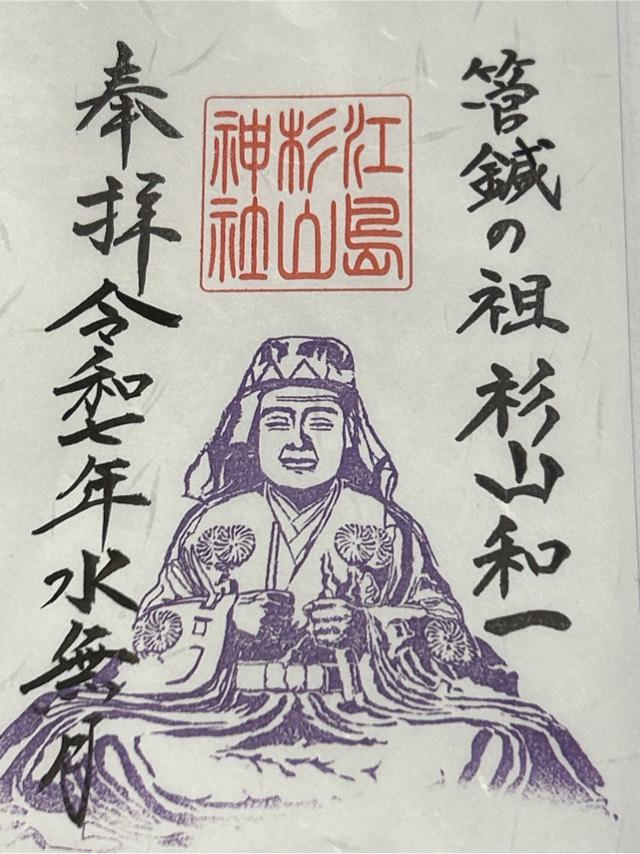 管鍼の祖 杉山和一
江島
杉山
神社
奉拝 令和七年水無月